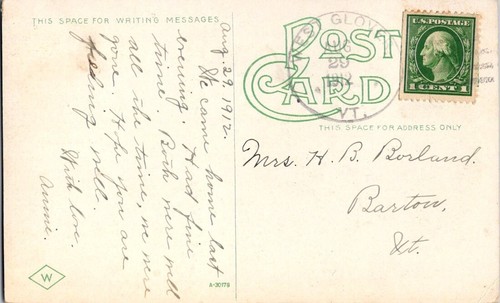 THIS SPACE FOR WRITING MESSAGES
Aug. 29, 1912.
We came home last
evening. Had fine
time. Both were well
all the time, we were
gone. Hope you are
feeling well.
With love,
Annie.
W
A-30179
POST
CARD
WEST GLOV
AUG
29
1912
VT.
U.S. POSTAGE
1 CENT 1
THIS SPACE FOR ADDRESS ONLY
Mrs. H. B. Borland.
Barton,
Vt.